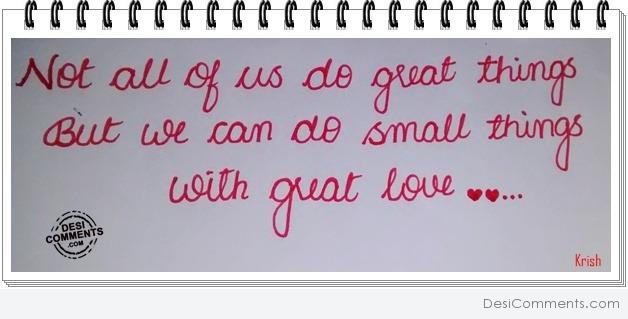 Not all of us do great things
But we can do small things
with great love ♥♥...
DESI
COMMENTS
.COM
Krish
DesiComments.com